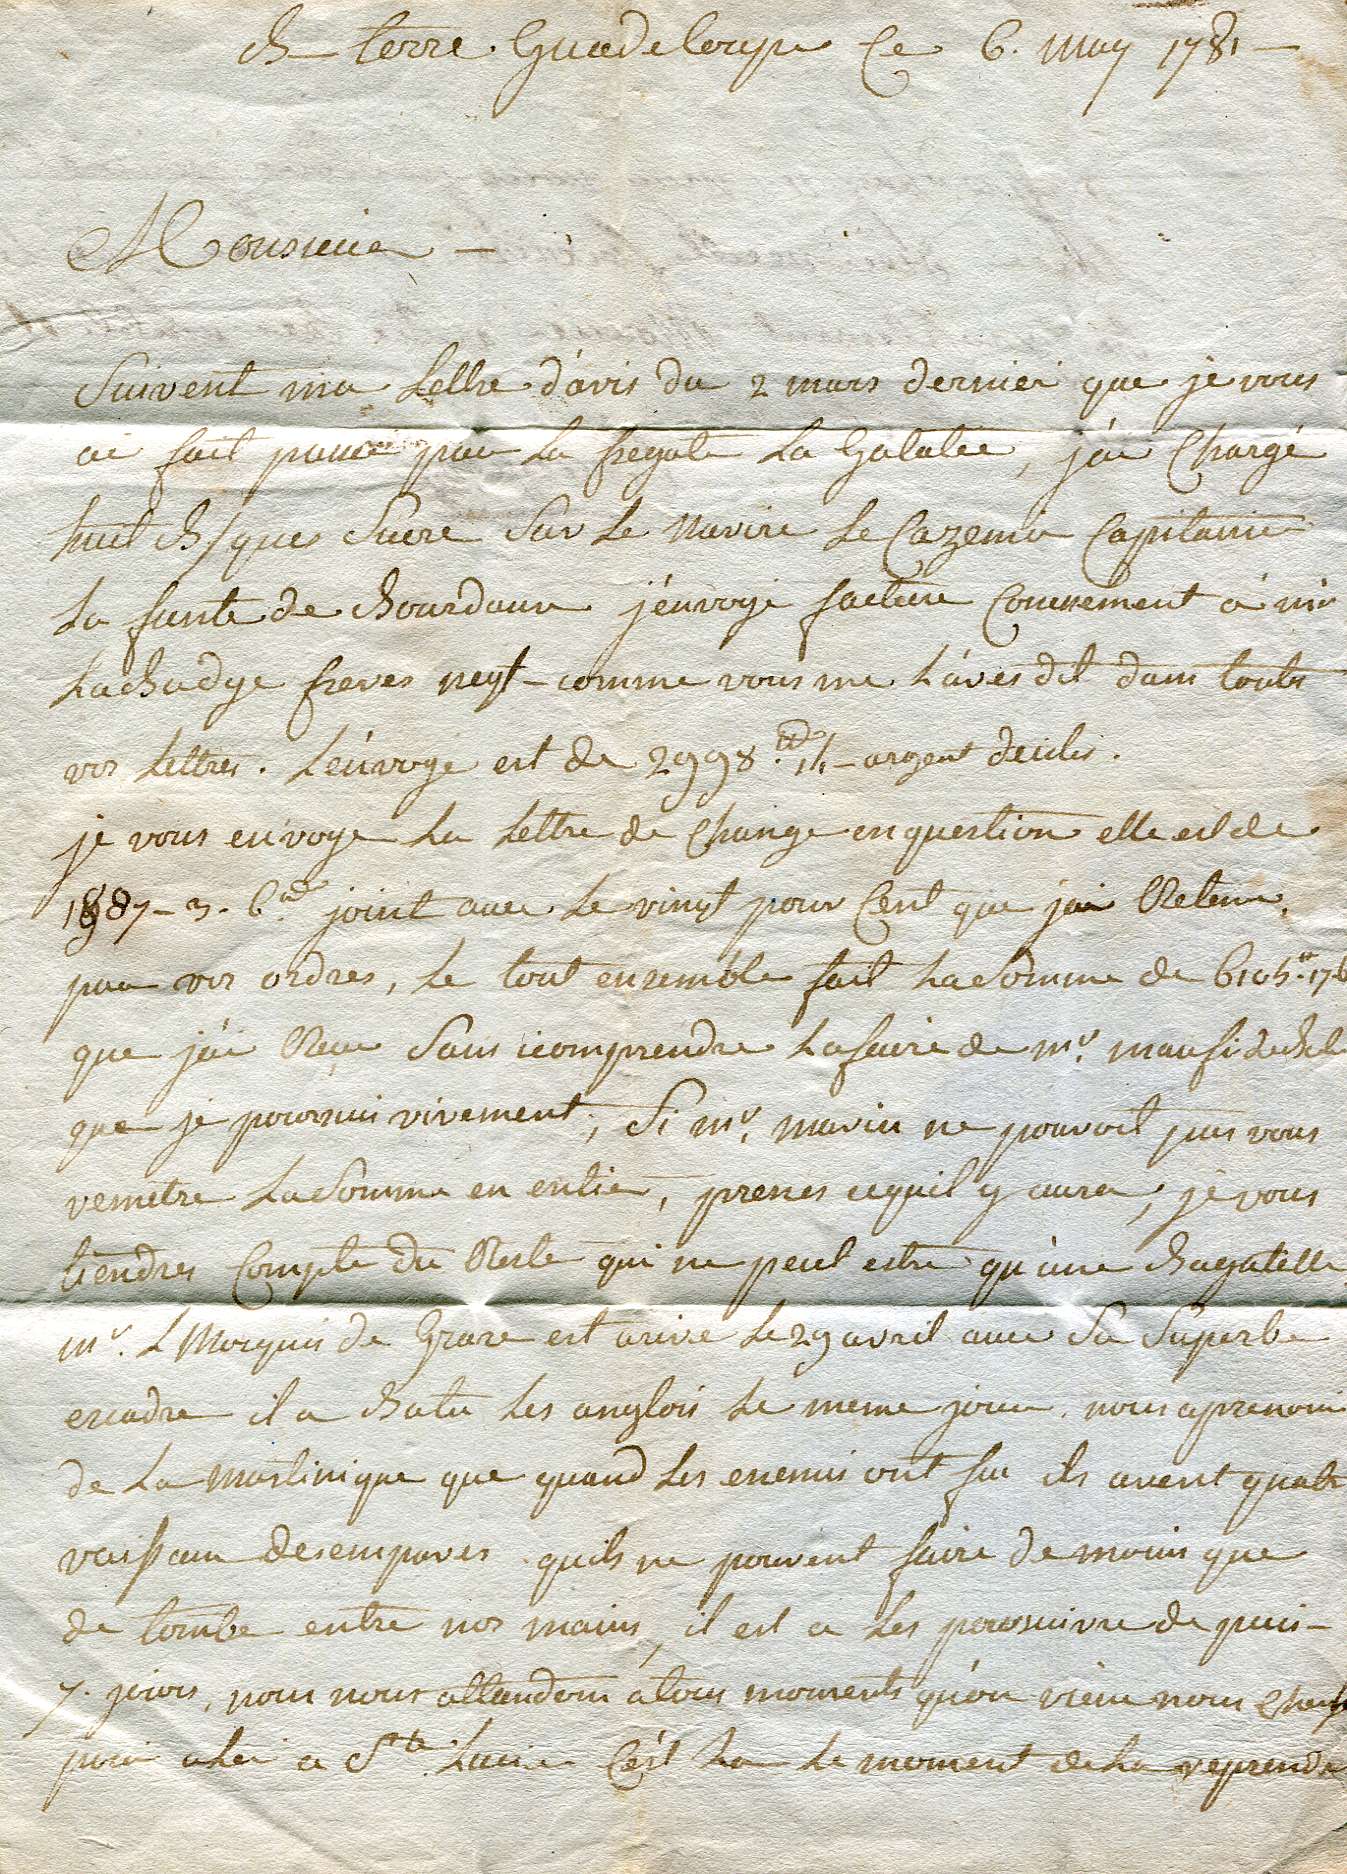 B terre Guadeloupe Ce 6. may 1781 -
Monsieur -
Suivent ma Lettre d'avis du 2 mars dernier que je vous
ai fait passer par La fregate La Galatée, j'ai Chargé
huit B/ques Sucre Sur Le Navire Le Cazemir Capitaine
La funte de Bourdeaux j'envoye facture Connesment a mr
LaBadye freres neyt - comme vous me L'avés dit dans touts
vos Lettres. L'envoye est de 2998.tt argent d'icila.
je vous envoye La Lettre de Change en question elle est de
1887 - 3. 6.d joint avec Le vingt pour Cent que j'ai Retenu,
par vos ordres, Le tout ensemble fait La Somme de 6105.tt 17
que j'ai Reçue Sans i comprendre Lafaire de mr.
que je poursuis vivement, Si mr. marin ne pouvoit pas vous
remetre La Somme en entier, prenes cequil y aura, je vous
tiendres Compte du Reste qui ne peut estre qu'une Bagatelle
mr. L Marquis de Grase est arivé Le 29 avril avec Sa Superbe
escadre il a Batu Les anglois Le meme jour. nous aprenons
de La Martinique que quand Les enemis ont fui ils avent quatre
vaissaux desempares quils ne pouvent faire de moins que
de tombe entre nos mains, il est a Les poursuivre de puis -
7. jours, nous nous attandons a tous moments qu'on viene nous
pour aler a Ste. Lucie C'est La Le moment de La reprendre